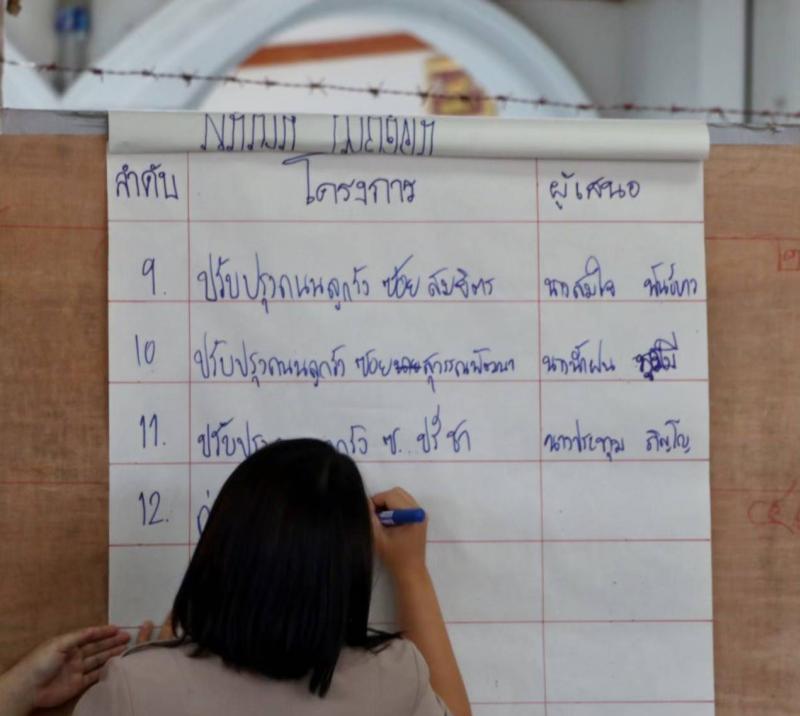 ลำดับ โครงการ ผู้เสนอ
9. ปรับปรุงถนนลูกรัง ซอย สมจิตร นางสมใจ
10 ปรับปรุงถนนลูกรัง ซอย สุวรรณพัฒนา นางน้ำฝน
11. ปรับปรุง ลูกรัง ซ. ปรีชา นางประทุม ภิญโญ
12.